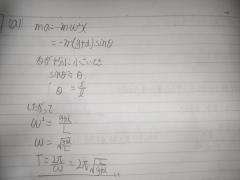 (a) ma = -mω²x
= -m(g+a)sinθ
θが十分小さいとき
sinθ ≒ θ
θ = x/L
したがって
ω² = (g+a)/L
ω = √((g+a)/L)
T = 2π/ω = 2π√(L/(g+a))